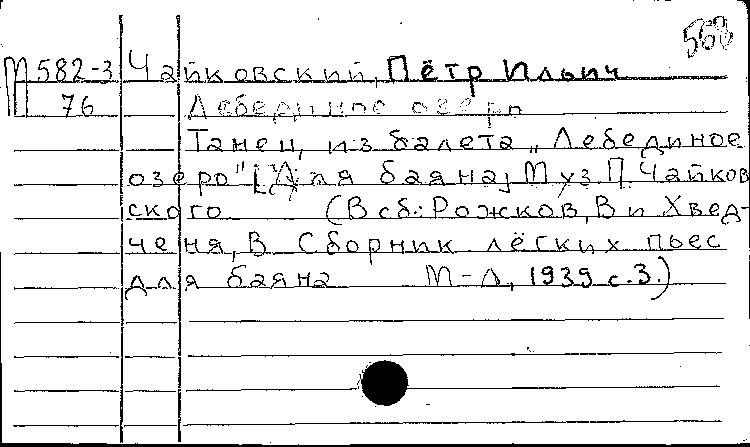 568
М582-3 Чайковский, Пётр Ильич
76 Лебединое озеро
Танец из балета „Лебединое
озеро" [Для баяна] Муз П. Чайков
ского (В сб.: Рожков, В и Хвед-
ченя, В. Сборник лёгких пьес
для баяна М-Л, 1939 с.3.)